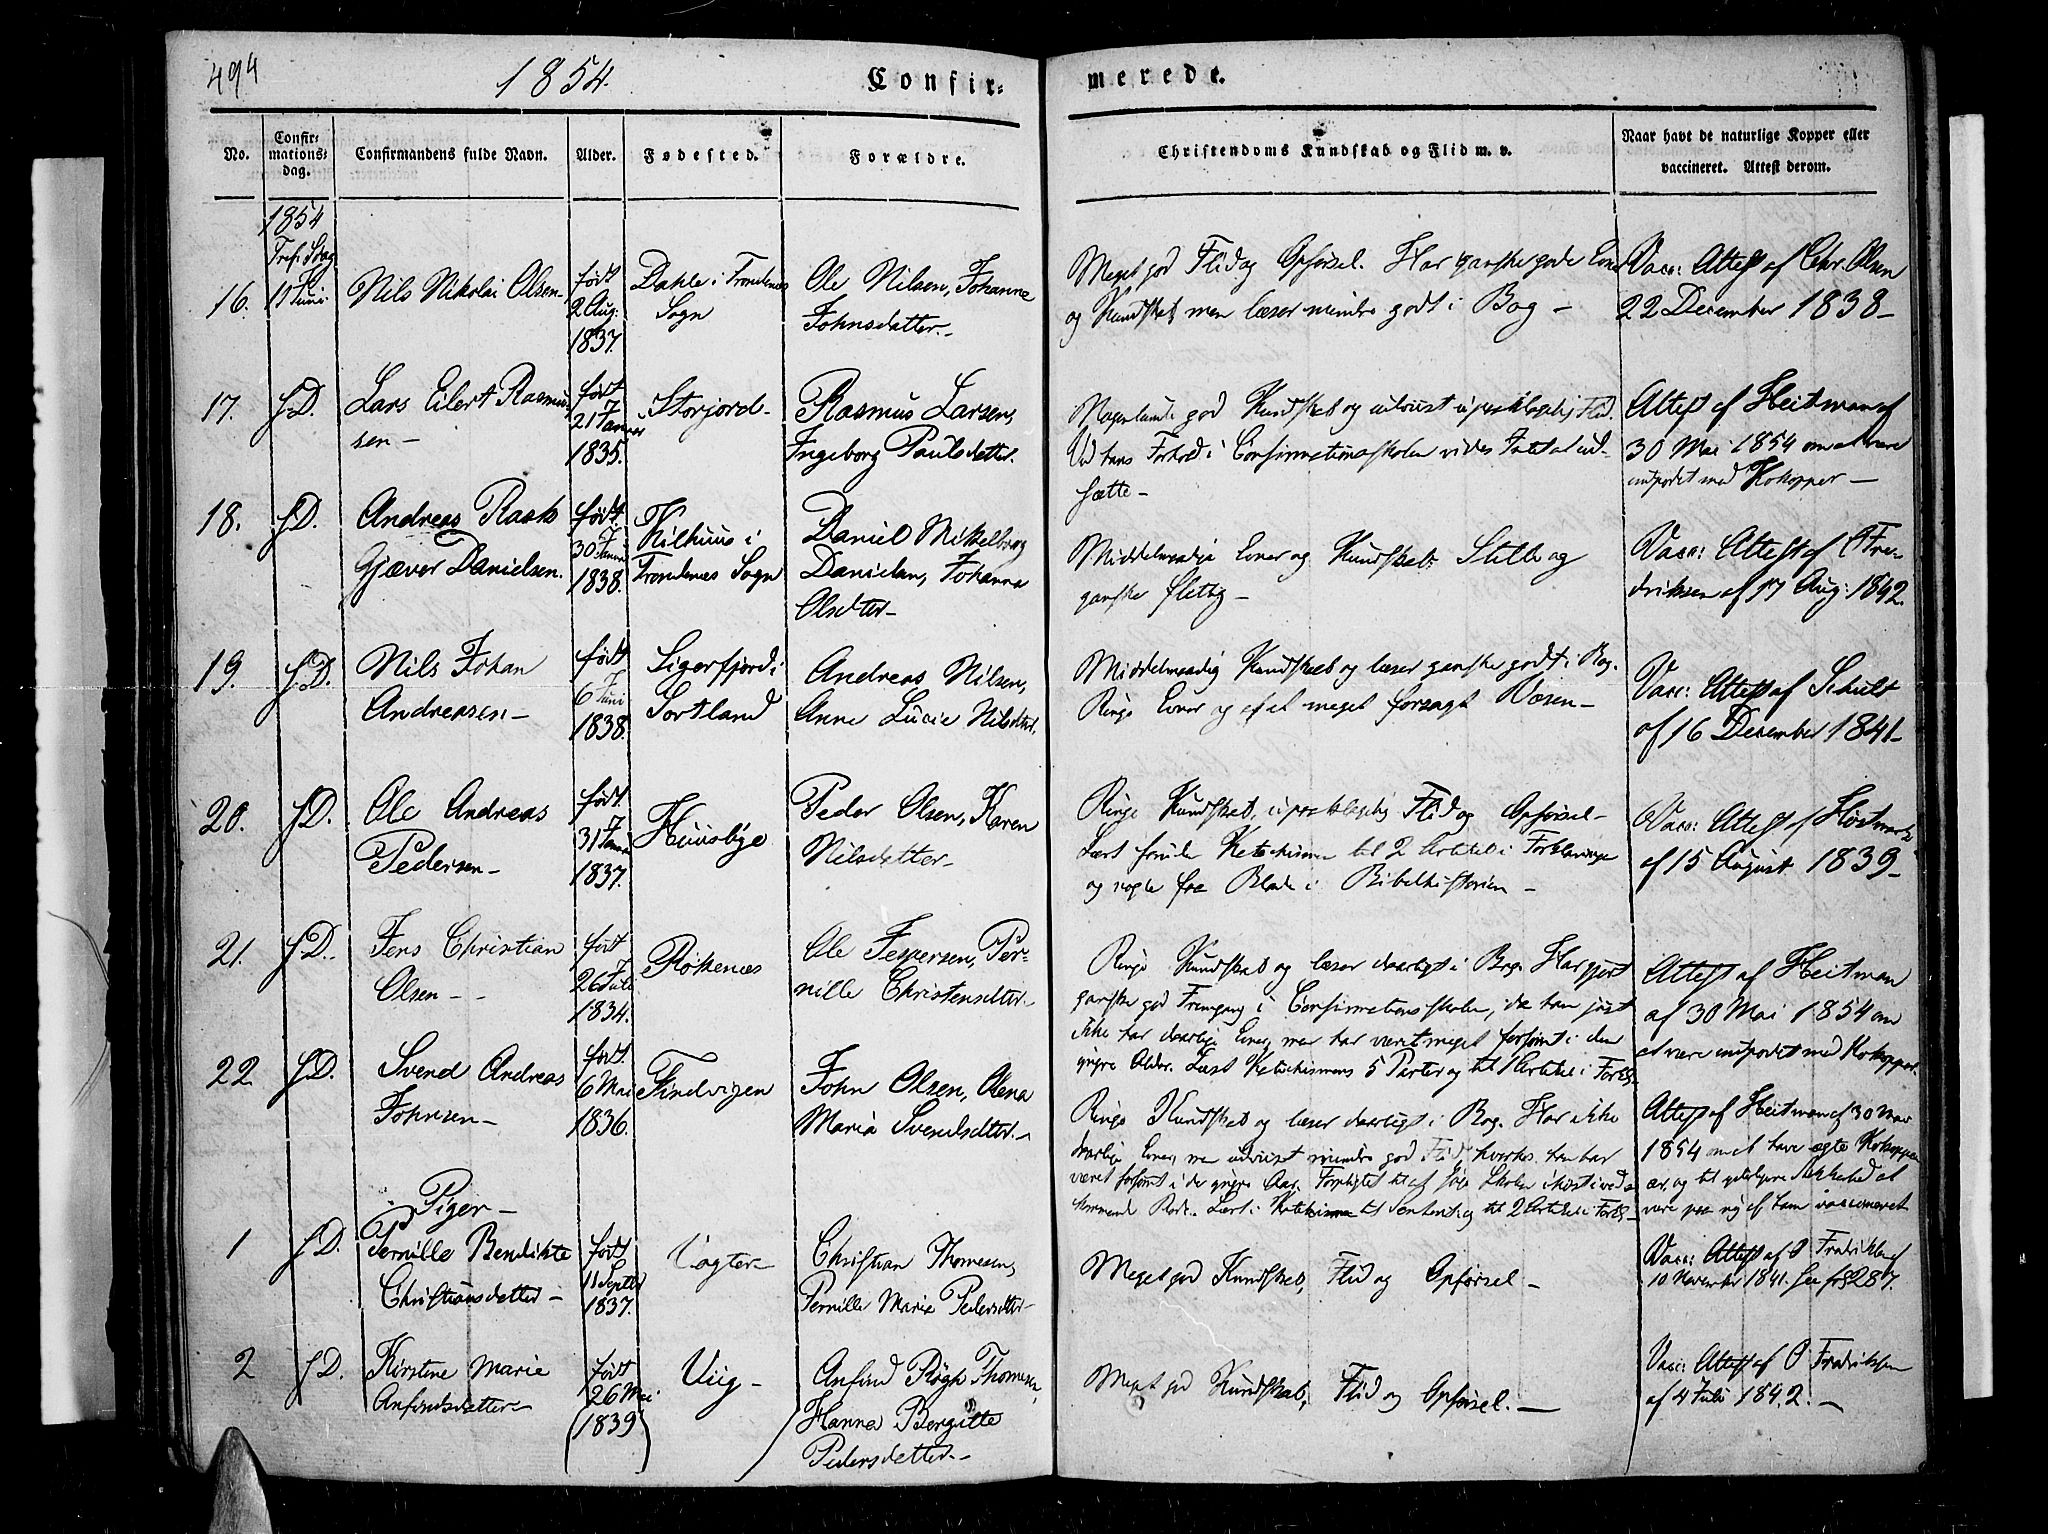 494
1854.
Confir=
merede.
No.
Confir=
mations=
dag.
Confirmandens fulde Navn.
Alder.
Fødested.
Forældre.
Christendoms Kundskab og Flid m. v.
Naar havt de naturlige Kopper eller
vaccineret. Attest derom.
1854
16. 11 Juni Nils Nikolai Olsen født 2 Aug: 1837. Dahle i Trondenæs Sogn Ole Nilsen, Johanne Johnsdatter
Meget god Flid og Opførsel. Har ganske gode Evner
og Kundskab men læser mindre godt i Bog –
Vacc: Attest af Chr. Olsen
22 December 1838 –
17. f D. Lars Eilert Rasmussen – født 21 Januar 1835. Storjord – Rasmus Larsen, Ingeborg Paulsdatter.
god Kundskab og udviist upaaklagelig Flid.
Ved hans Forhold i Confirmationsskolen vides Intet at ud-
sætte –
Attest af Heitman af
30 Mai 1854 om at være
indpodet med Kokopper –
18. f D. Andreas Rask Gjæver Danielsen. født 30 Januar 1838. Kilhuus i Trondenæs Sogn Daniel Mikkelborg Danielsen, Johanna Olsdtter –
Middelmaadige Evner og Kundskab. Stille og
ganske flittig –
Vacc: Attest af P Fre-
driksen af 17 Aug: 1842.
19. f D. Nils Johan Andreasen – født 6 Juni 1838. Sigerfjord i Sortland Andreas Nilsen, Anne Lucie Nilsdtter.
Middelmaadig Kundskab og læser ganske godt i Bog.
Ringe Evner og af et meget forsagt Væsen –
Vacc: Attest af Schult
af 16 December 1841 –
20. f D. Ole Andreas Pedersen – født 31 Januar 1837. Huusbye Peder Olsen, Karen Nilsdatter –
Ringe Kundskab, upaaklagelig Flid og Opførsel –
Lært foruden Katechismen til 2 Artikel i Forklaringen
og nogle faa Blade i Bibelhistorien –
Vacc: Attest af Høstmark
af 15 August 1839 –
21. f D. Jens Christian Olsen – født 26 Juli 1834. Røkenæs Ole Jespersen, Per-
nille Christensdtter –
Ringe Kundskab og læser daarligt i Bog. Har gjort
ganske god Fremgang i Confirmationsskolen, da han just
ikke har daarlige Evner, men har været meget forsømt i den
yngre Alder. Læst Katechismens 5 Parter og til 1 Artikel i Forkl.
Attest af Heitman
af 30 Mai 1854 om
at være indpodet med Kokopper.
22. f D. Svend Andreas Johnsen – født 6 Mai 1836. Findvigen John Olsen, Olena Maria Svendsdtter –
Ringe Kundskab og læser daarligt i Bog. Har ikke
daarlige Evner, men udviist mindre god Flid,
været forsømt i de yngre Aar.
Attest af Heitman af 30 Mai
1854 om at have ægte Kokopper
Piger –
1 f D. Pernille Bendikte Christiansdatter – født 11 Septbr 1837. Vagter Christian Thomesen, Pernille Maria Pedersdtter –
Meget god Kundskab, Flid og Opførsel –
Vacc: Attest af P Fredriksen af
10 November 1841.
2 f D. Kirstine Marie Anfindsdatter – født 26 Mai (1839) Viig – Anfind Røgh Thomesen, Hanna Bergitte Pedersdatter –
Meget god Kundskab, Flid og Opførsel. –
Vacc: Attest af P Fredriksen
af 4 Juli 1842. –